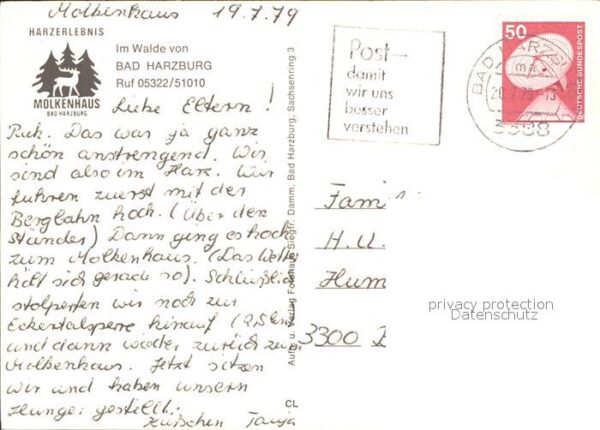 Molkenhaus 19.7.79
HARZERLEBNIS
MOLKENHAUS
BAD HARZBURG
Im Walde von
BAD HARZBURG
Ruf 05322/51010
Liebe Eltern!
Puh. Das war ja ganz
schön anstrengend. Wir
sind also im Harz. Wir
fuhren zuerst mit der
Bergbahn hoch. (Über den
Ständer) Dann ging es hoch
zum Molkenhaus. (Das Wetter
hält sich gerade so). Schließlich
stolperten wir noch zur
Eckertalsperre hinauf (2,5km)
und dann wieder zurück zum
Molkenhaus. Jetzt sitzen
wir und haben unsern
Hunger gestillt.
Küsschen Tanja
Aufn. u. Verlag Siegfr. Damm, Bad Harzburg, Sachsenring 3
CL
Post-
damit
wir uns
besser
verstehen
BAD HARZBURG
20.7.79
3388
50
DEUTSCHE BUNDESPOST
Fam
H. U.
Hum
3300
privacy protection
Datenschutz